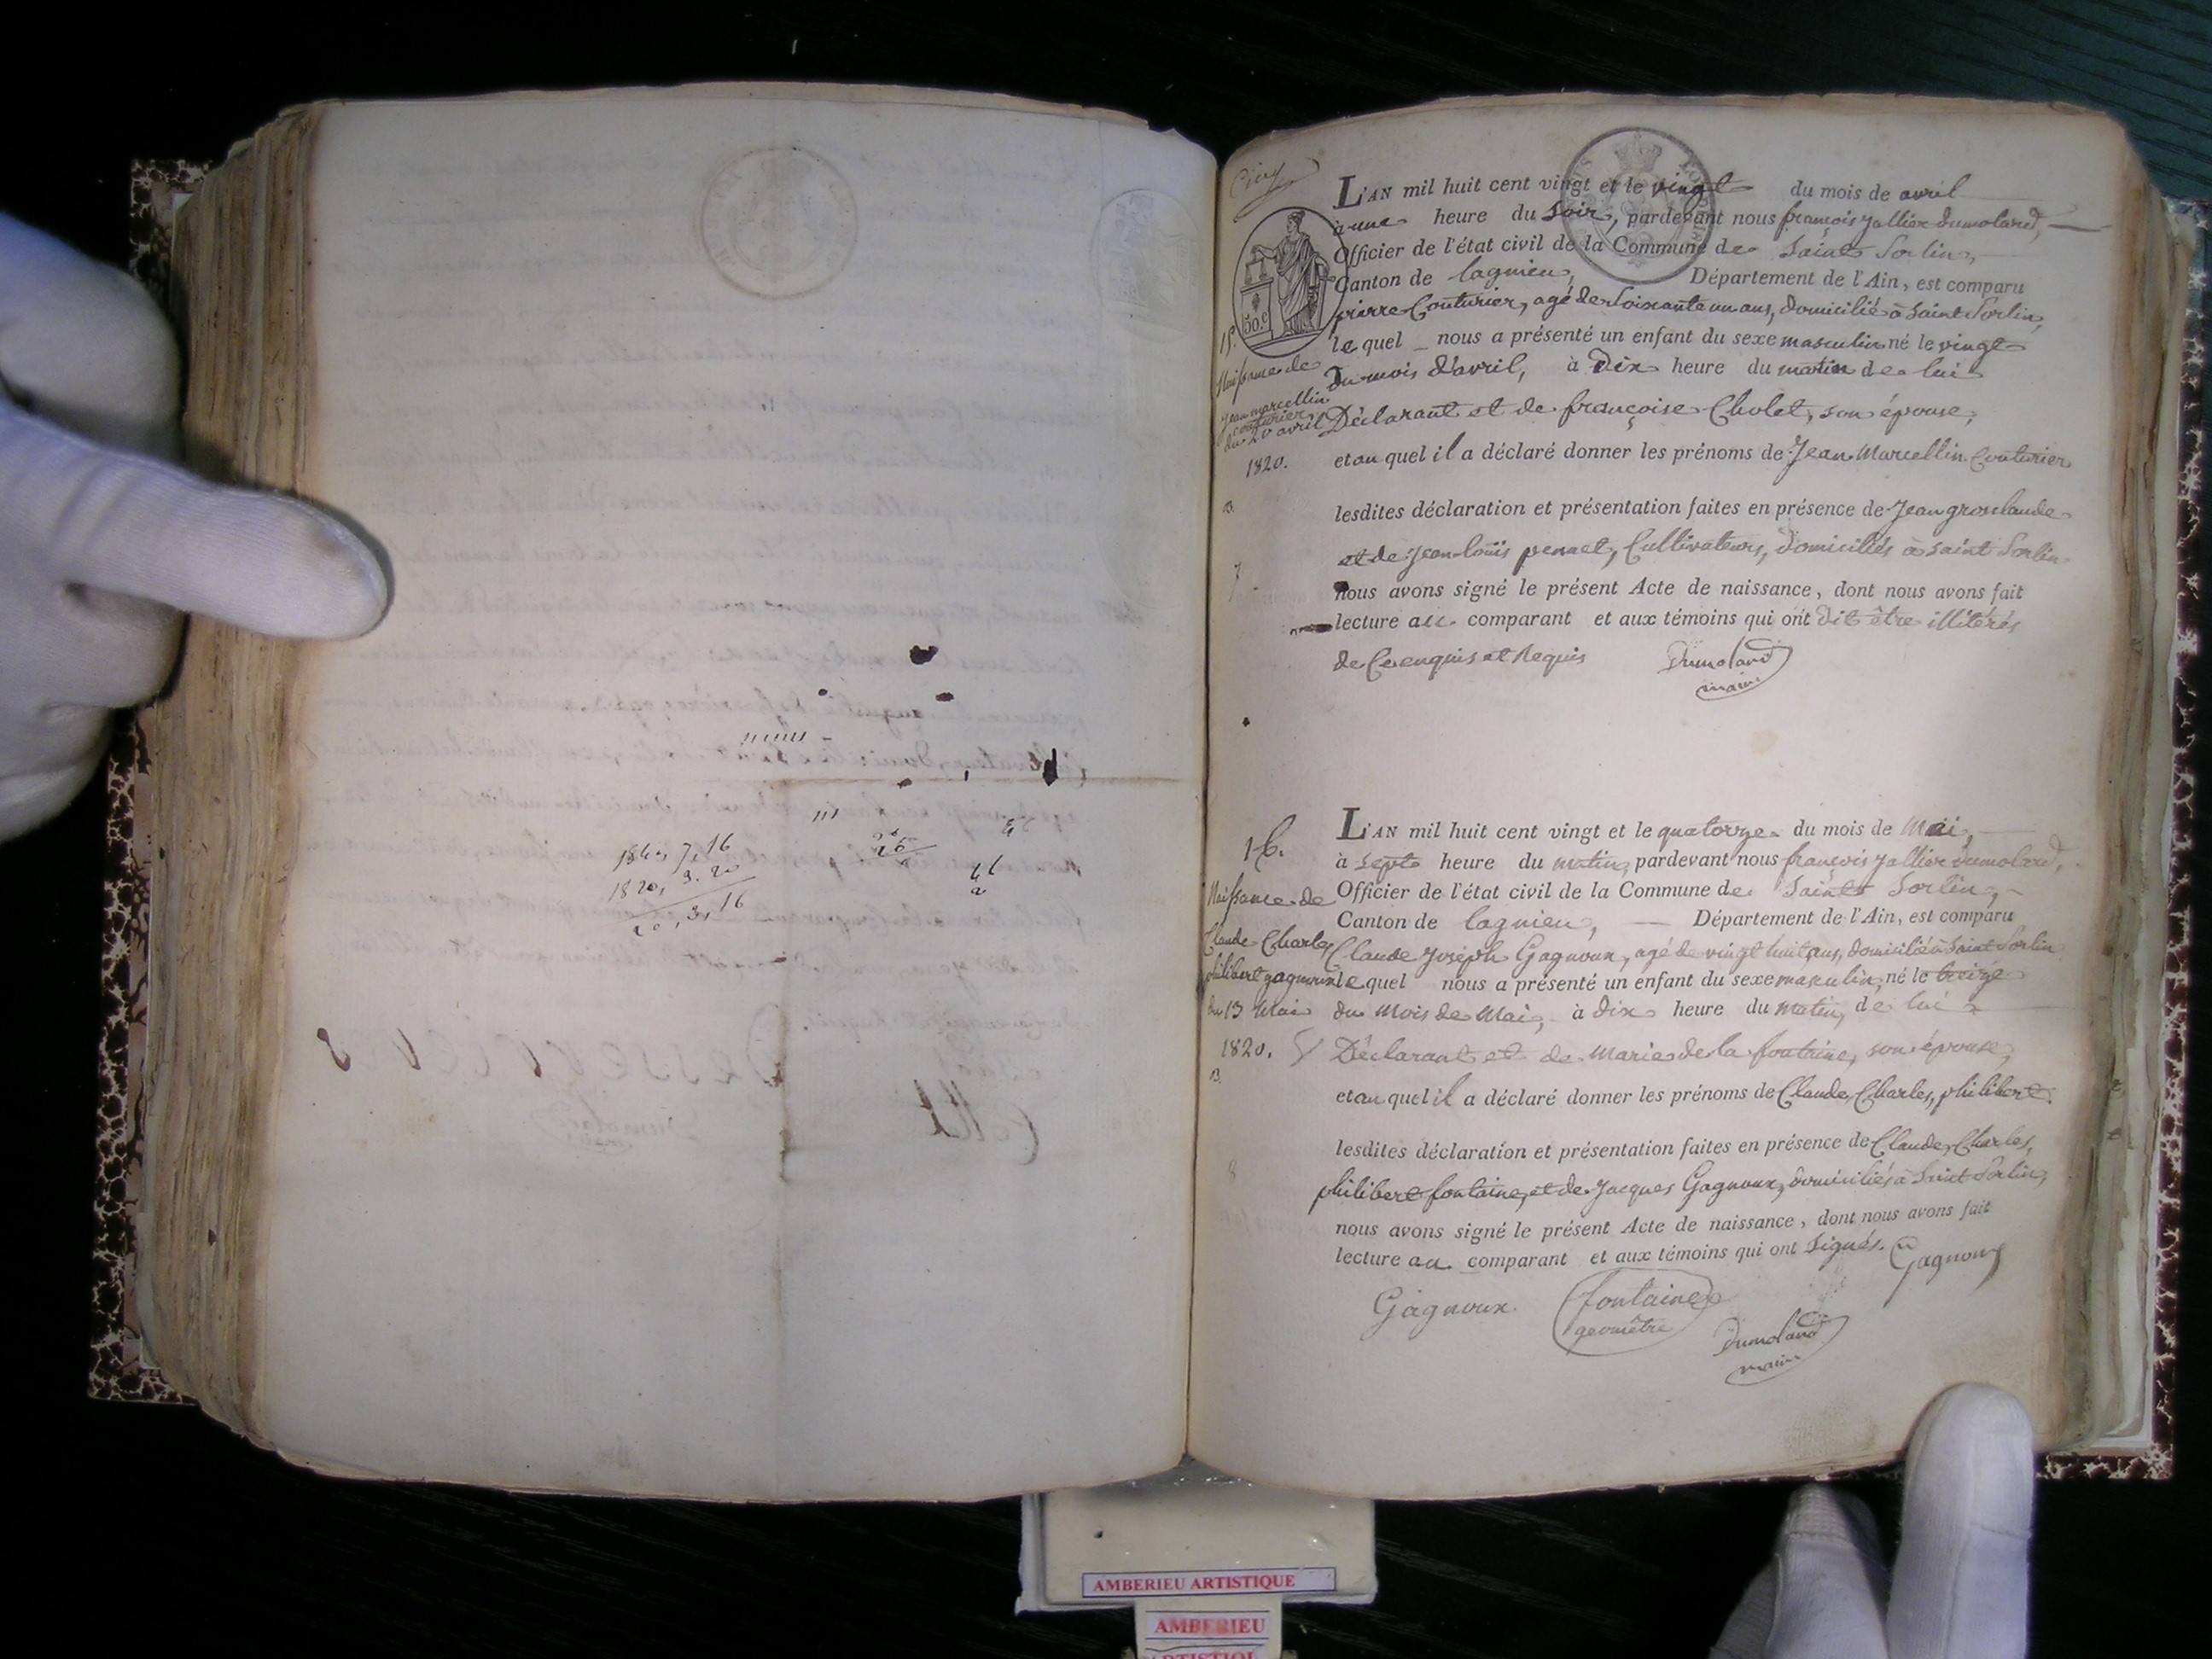 1840, 7, 16
1820, 3. 20
20, 3, 16
L'AN mil huit cent vingt et le vingt du mois de avril
à une heure du soir, pardevant nous françois jallier Dumolard,
Officier de l'état civil de la Commune de Saint Sorlin,
Canton de lagnieu, Département de l'Ain, est comparu
pierre Couturier, agé de soixante un ans, domicilié à Saint Sorlin,
50.c
15.
le quel nous a présenté un enfant du sexe masculin né le vingt
Naissance de
du mois d'avril, à Dix heure du matin de lui
jean marcellin
couturier
du 20 avril
Déclarant et de françoise Cholet, son épouse,
1820.
et au quel il a déclaré donner les prénoms de Jean Marcellin Couturier
lesdites déclaration et présentation faites en présence de Jean grosclaude
et de jean-loüis pernet, Cultivateurs, domiciliés à saint Sorlin
7
nous avons signé le présent Acte de naissance, dont nous avons fait
lecture au comparant et aux témoins qui ont dit être illitérés
de Ce enquis et Requis
Dumolard
maire
L'AN mil huit cent vingt et le quatorze du mois de Mai,
16.
à sept heure du matin, pardevant nous françois jallier dumolard,
Naissance de
Officier de l'état civil de la Commune de Saint Sorlin,
Canton de lagnieu, Département de l'Ain, est comparu
Claude Charles
Claude joseph Gagnoux, agé de vingt huit ans, domicilié à Saint Sorlin
philibert gagnoux
le quel nous a présenté un enfant du sexe masculin, né le treize
du 13 Mai
du Mois de Mai, à dix heure du matin, de lui
1820.
Déclarant et de Marie de la fontaine, son épouse,
et au quel il a déclaré donner les prénoms de Claude, Charles, philibert.
lesdites déclaration et présentation faites en présence de Claude, Charles,
8
philibert fontaine, et de Jacques Gagnoux, domiciliés à Saint Sorlin,
nous avons signé le présent Acte de naissance, dont nous avons fait
lecture au comparant et aux témoins qui ont signés.
Gagnoux
Gagnoux
fontaine
geomêtre
Dumolard
maire
AMBERIEU ARTISTIQUE
AMBERIEU
ARTISTIQUE